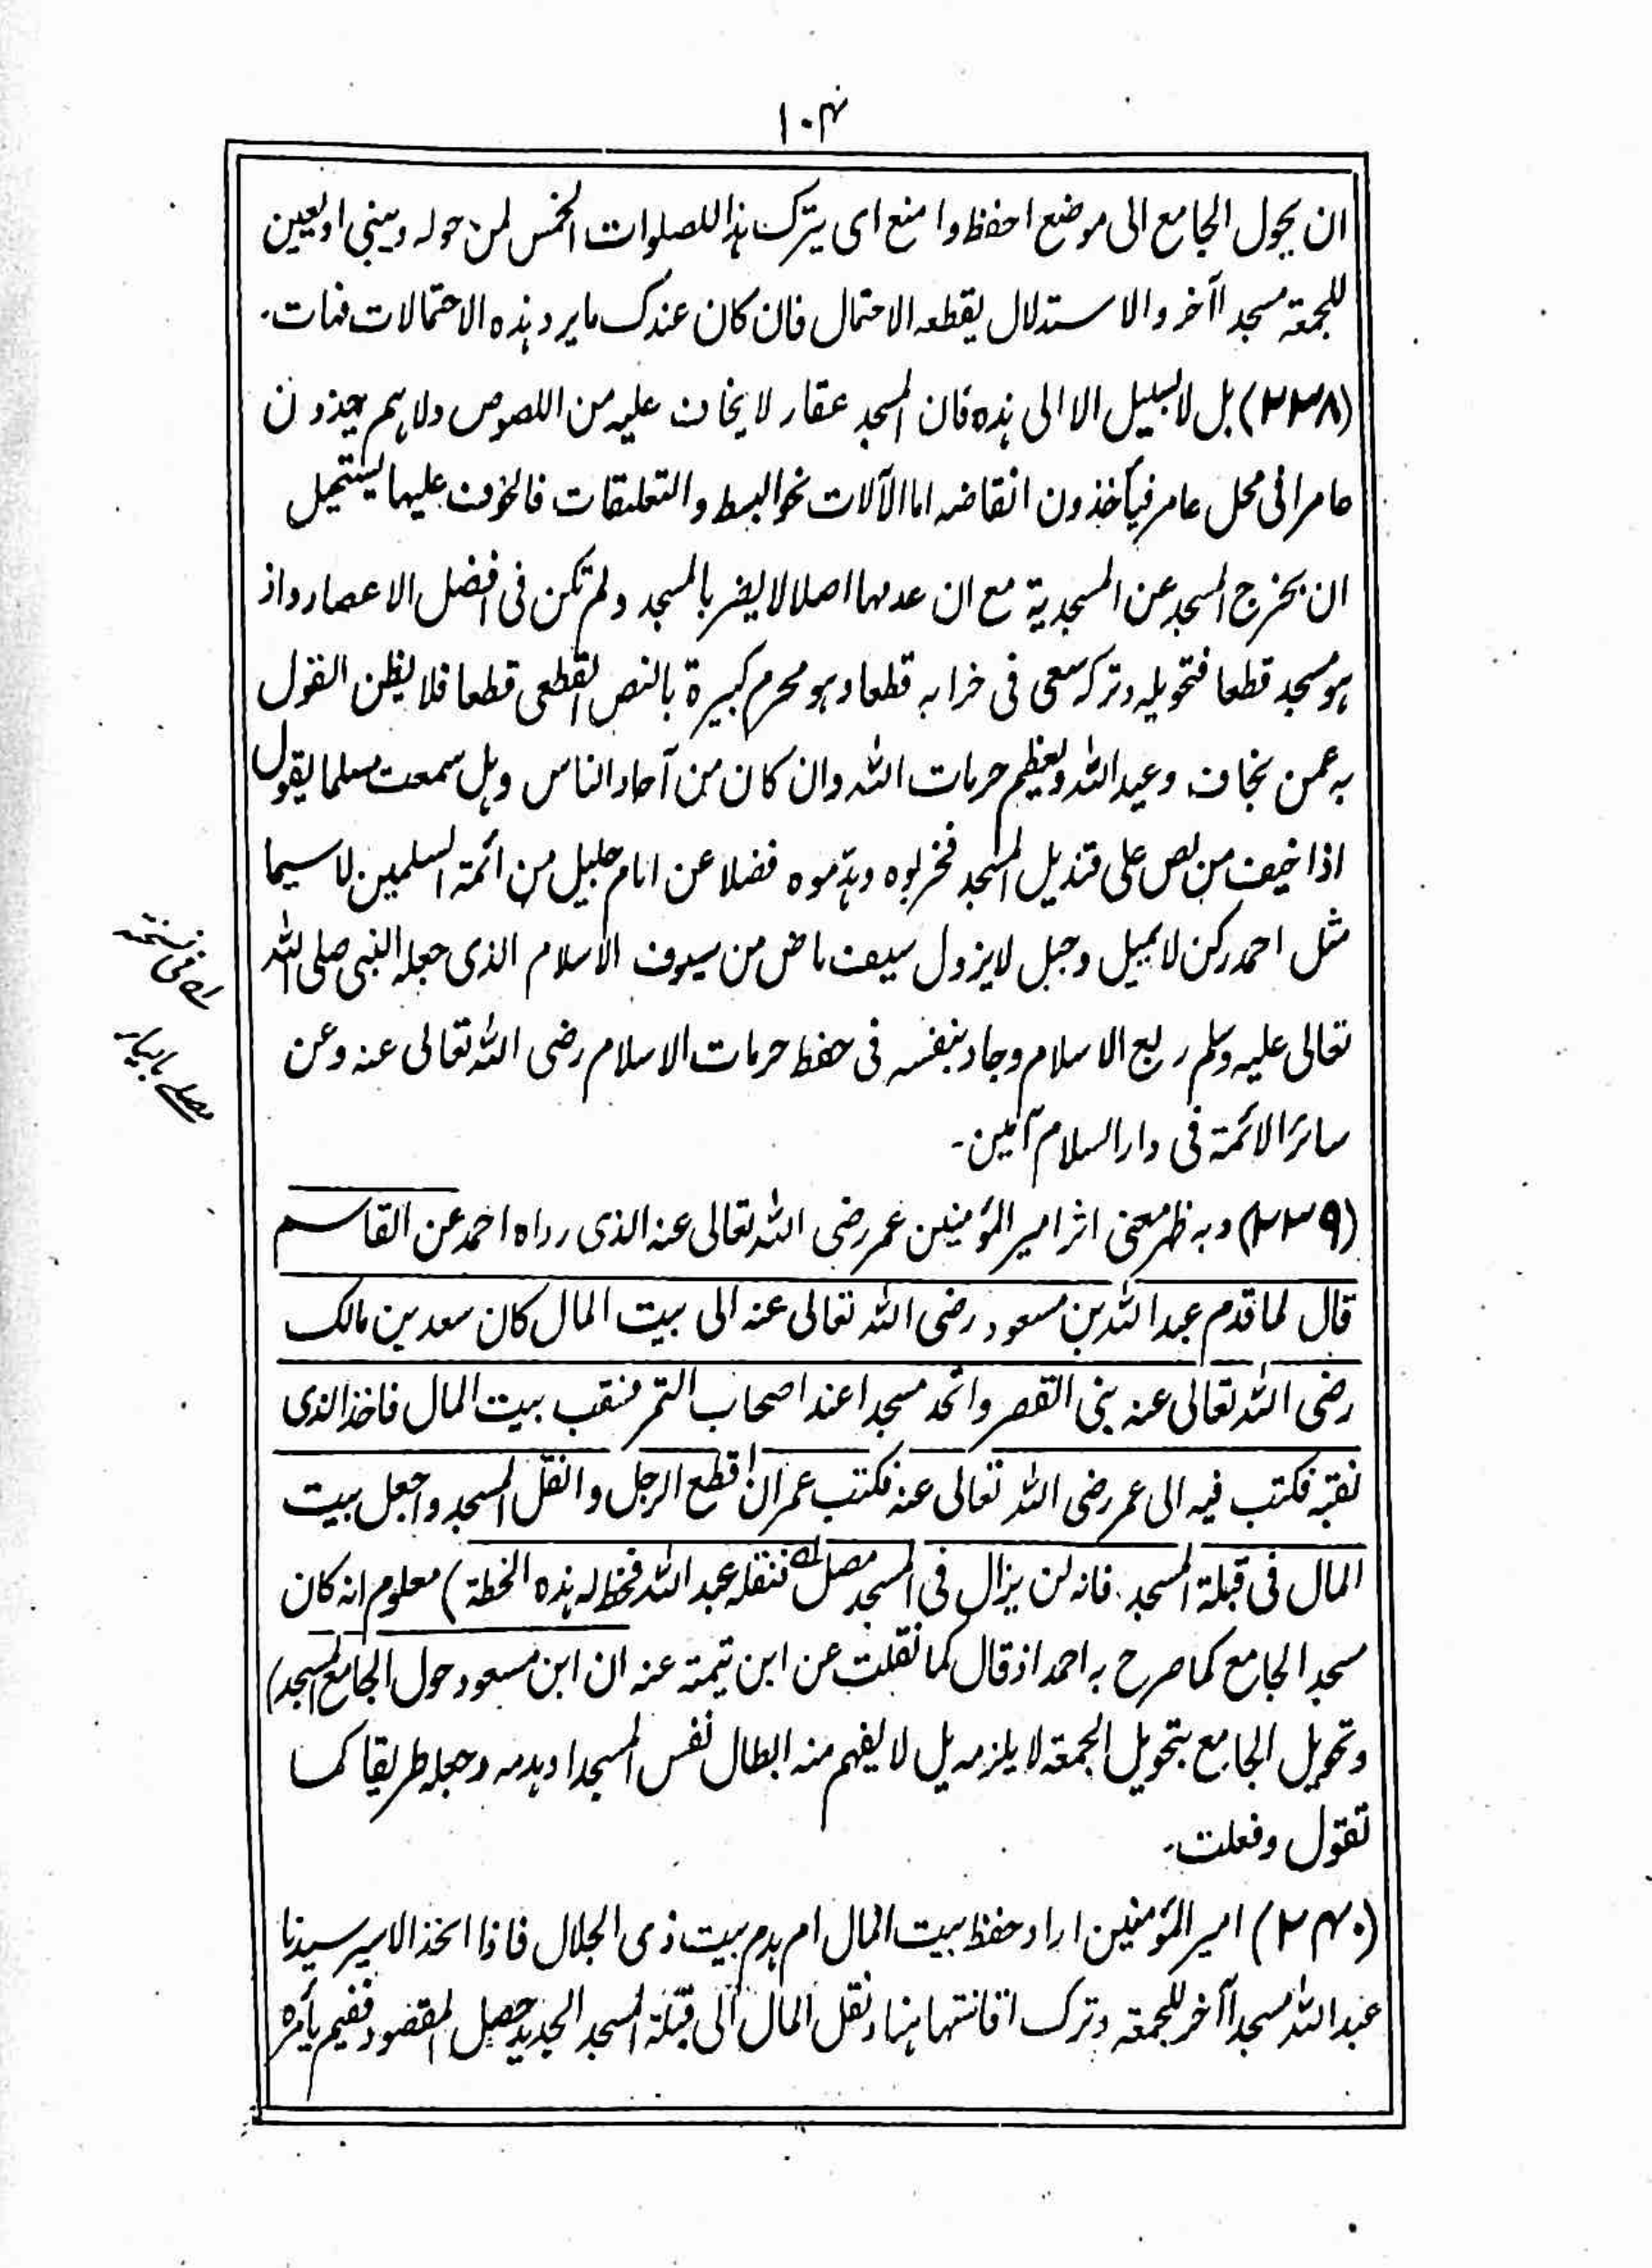 ۱۰۴
ان یحول الجامع الی موضع احفظ وامنع ای یترک ہذا للصلوات الخمس لمن حولہ ویبنی او یعین
للجمعۃ مسجدا آخر والاستدلال یقطعہ الاحتمال فان کان عندک ما یرد ہذہ الاحتمالات فہات۔
(۲۳۸) بل لا سبیل الا الی ہذہ فان المسجد عقار لا یخاف علیہ من اللصوص ولا ہم یجذون
عامرا فی محل عامر فیأخذون انقاضہ اما الآلات نحو البسط والتعلیقات فالخوف علیہا یستحیل
ان یخرج المسجد عن المسجدیۃ مع ان عدمہا اصلا لا یضر بالمسجد ولم تکن فی افضل الاعصار واذ
ہو مسجد قطعا فتحویلہ وترکہ سعی فی خرابہ قطعا وہو محرم کبیرۃ بالنص القطعی قطعا فلا یظن القول
بہ عمن یخاف وعید اللہ ویعظم حرمات اللہ وان کان من آحاد الناس وہل سمعت مسلما یقول
اذا خیف من لص علی قندیل المسجد فخربوہ وہدّموہ فضلا عن امام جلیل من ائمۃ المسلمین لا سیما
مثل احمد رکن لا یمیل وجبل لا یزول سیف ماض من سیوف الاسلام الذی جعلہ النبی صلی اللہ
تعالی علیہ وسلم ربع الاسلام وجاد بنفسہ فی حفظ حرمات الاسلام رضی اللہ تعالی عنہ وعن
سائر الائمۃ فی دار السلام آمین۔
(۲۳۹) وبہ ظہر معنی اثر امیر المؤمنین عمر رضی اللہ تعالی عنہ الذی رواہ احمد عن القاسم
قال لما قدم عبد اللہ بن مسعود رضی اللہ تعالی عنہ الی بیت المال کان سعد بن مالک
رضی اللہ تعالی عنہ بنی القصر واتخذ مسجدا عند اصحاب التمر فنقب بیت المال فاخذ الذی
نقبہ فکتب فیہ الی عمر رضی اللہ تعالی عنہ فکتب عمر ان اقطع الرجل وانقل المسجد واجعل بیت
المال فی قبلۃ المسجد۔ فانہ لن یزال فی المسجد مصل لہ فنقلہ عبد اللہ فخط لہ ہذہ الخطۃ) معلوم انہ کان
مسجد الجامع کما صرح بہ احمد اذ قال کما نقلت عن ابن تیمیۃ عنہ ان ابن مسعود حول الجامع المسجد)
وتحویل الجامع بتحویل الجمعۃ لا یلزمہ بل لا یفہم منہ ابطال نفس المسجد او ہدمہ وجعلہ طریقا کما
تقول وفعلت۔
(۲۴۰) امیر المؤمنین اراد حفظ بیت المال ام ہدم بیت ذی الجلال فاذا اتخذ الامیر سیدنا
عبد اللہ مسجدا آخر للجمعۃ وترک اقامتہا ہنا ونقل المال الی قبلۃ المسجد الجدید حصل المقصود ففیم یأمرہ
لہ فی نسختہ
مصلے بالیاء